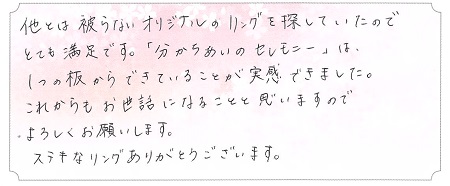 他とは被らないオリジナルのリングを探していたので
とても満足です。「分かちあいのセレモニー」は、
1つの板からできていることが実感できました。
これからもお世話になることと思いますので
よろしくお願いします。
ステキなリングありがとうございます。